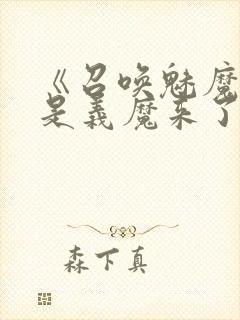 《召唤魅魔
是义魔来了
森下真